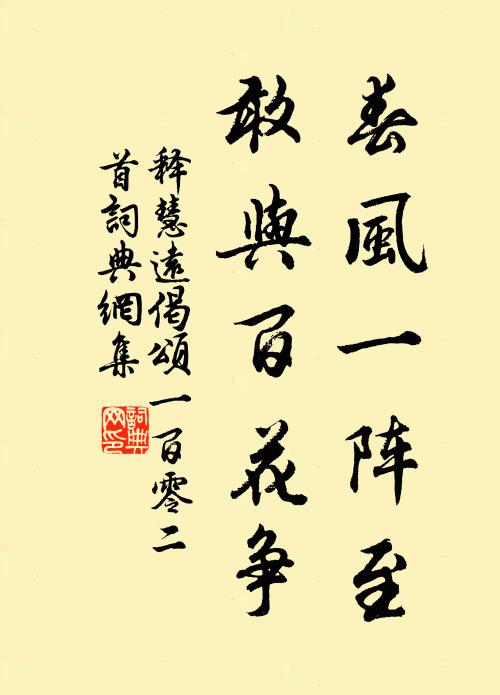 春風一阵至
敢與百花争
释慧遠偈頌一百零二
首詞典網集
詞典
网印